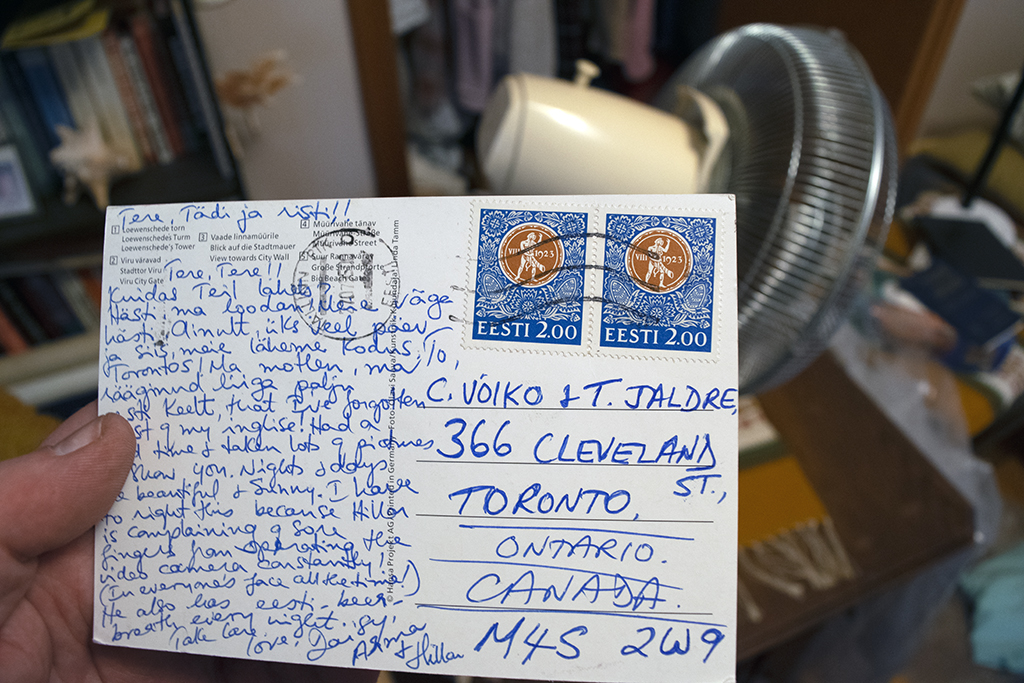 Tere, Tädi ja risti!!
1 Loewenschede torn
Loewenschedes Turm
Loewenschede's Tower
2 Viru väravad
Stadttor Viru
Viru City Gate
3 Vaade linnamüürile
Blick auf die Stadtmauer
View towards City Wall
4 Müürivahe tänav
Müürivahe Straße
Müürivahe Street
5 Suur Rannavärav
Große Strandpforte
Big Beach Gate
Tere, Tere!!
Kuidas Teil läheb
Hästi ma loodan väga
hästi. Ainult, üks veel päev
ja siis, meie läheme Kodus. To,
Torontos, Ma motlen, ma
rääginud liiga palju
eesti Keelt, that I've forgotten
my inglise! Had a
time & taken lots of pictures
show you. Nights & days
beautiful & Sunny. I have
to right this because Hillar
is complaining of sore
fingers from operating the
video camera constantly!
(In everyone's face all the time!)
He also has eesti-beer-
breath every night.
Take Care, love,
& Hillar
VIII 1923
EESTI 2.00
VIII 1923
EESTI 2.00
C. VÕIKO & T. JALDRE,
366 CLEVELAND
ST.,
TORONTO,
ONTARIO.
CANADA.
M4S 2W9